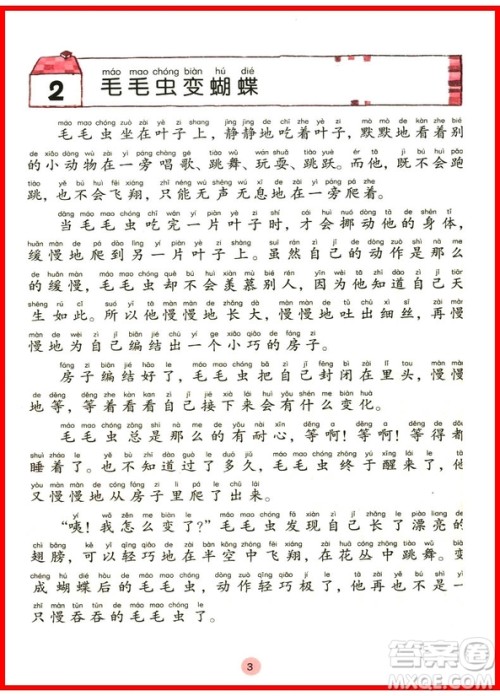 máo mao chóng biàn hú dié
2 毛毛虫变蝴蝶
máo mao chóng zuò zài yè zi shang jìng jìng de chī zhe yè zi mò mò de kàn zhe bié
毛毛虫坐在叶子上，静静地吃着叶子，默默地看着别
de xiǎo dòng wù zài yì páng chàng gē tiào wǔ wán shuǎ tiào yuè ér tā bú huì pǎo
的小动物在一旁唱歌、跳舞、玩耍、跳跃。而他，既不会跑
tiào yě bú huì fēi xiáng zhǐ néng wú shēng wú xī de zài yì páng pá zhe
跳，也不会飞翔，只能无声无息地在一旁爬着。
dāng máo mao chóng chī wán yí piàn yè zi shí cái huì nuó dòng tā de shēn tǐ
当毛毛虫吃完一片叶子时，才会挪动他的身体，
huǎn màn de pá dào lìng yí piàn yè zi shang suī rán zì jǐ de dòng zuò shì nà me
缓慢地爬到另一片叶子上。虽然自己的动作是那么
de huǎn màn máo mao chóng què bú huì xiàn mù bié rén yīn wèi tā zhī dào zì jǐ tiān
的缓慢，毛毛虫却不会羡慕别人，因为他知道自己天
shēng rú cǐ suǒ yǐ tā màn màn de zhǎng dà màn màn de tǔ chū xì sī zài màn
生如此。所以他慢慢地长大，慢慢地吐出细丝，再慢
màn de wèi zì jǐ biān jié chū yí gè xiǎo qiǎo de fáng zi
慢地为自己编结出一个小巧的房子。
fáng zi biān jié hǎo le máo mao chóng bǎ zì jǐ fēng bì zài lǐ tou màn màn
房子编结好了，毛毛虫把自己封闭在里头，慢慢
de děng děng zhe kàn kan zì jǐ jiē xià lái huì yǒu shén me biàn huà
地等，等着看看自己接下来会有什么变化。
máo mao chóng zǒng shì nà me de yǒu nài xīn děng a děng a děng de
毛毛虫总是那么的有耐心，等啊！等啊！等得都
shuì zháo le yě bù zhī dào guò le duō jiǔ máo mao chóng zhōng yú xǐng lái le
睡着了。也不知道过了多久，毛毛虫终于醒了过来，
yòu màn màn de cóng fáng zi li pá le chū lái
又慢慢地从房子里爬了出来。
yí wǒ zěn me biàn le máo mao chóng fā xiàn zì jǐ zhǎng le piào liang de
“咦！我怎么变了？”毛毛虫发现自己长了漂亮的
chì bǎng kě yǐ qīng qiǎo de zài bàn kōng zhōng fēi xiáng zài huā cóng zhōng tiào wǔ biàn
翅膀，可以轻巧地在半空中飞翔，在花丛中跳舞。变
chéng hú dié hòu de máo mao chóng dòng zuò qīng qiǎo jí le zài yě bú shì
成蝴蝶后的毛毛虫，动作轻巧极了，再也不是一
zhī màn tūn tūn de máo mao chóng le
只慢吞吞的毛毛虫了。
3
答案圈
MXQE.COM